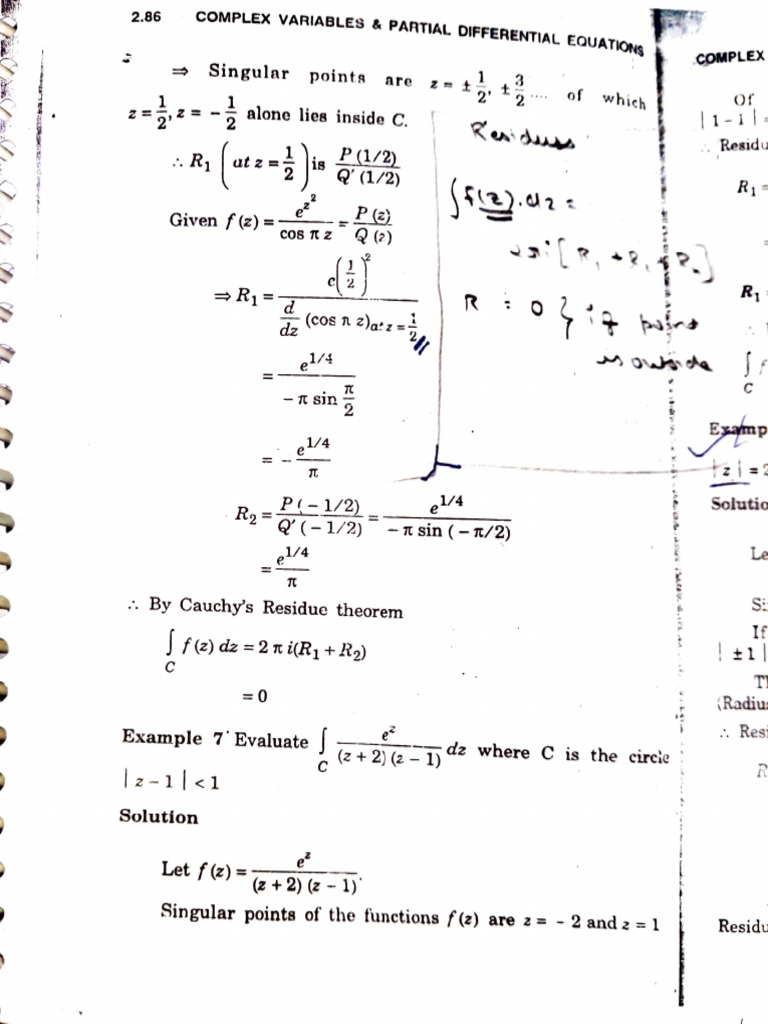 2.86 COMPLEX VARIABLES & PARTIAL DIFFERENTIAL EQUATIONS
⇒ Singular points are z = ± 1/2, ± 3/2 .... of which
z = 1/2, z = − 1/2 alone lies inside C.
∴ R₁ (at z = 1/2) is P (1/2) / Q′ (1/2)
Given f (z) = e^{z²} / cos π z = P (z) / Q (z)
⇒ R₁ = e^{(1/2)²} / d/dz (cos π z)_{at z = 1/2}
= e^{1/4} / − π sin π/2
= − e^{1/4} / π
R₂ = P (− 1/2) / Q′ (− 1/2) = e^{1/4} / − π sin (− π/2)
= e^{1/4} / π
∴ By Cauchy's Residue theorem
∫_C f (z) dz = 2 π i(R₁ + R₂)
= 0
Example 7 Evaluate ∫_C e^z / (z + 2) (z − 1) dz where C is the circle
| z − 1 | < 1
Solution
Let f (z) = e^z / (z + 2) (z − 1).
Singular points of the functions f (z) are z = − 2 and z = 1
∫ f(z).dz =
R = 0 } if point
is outside
COMPLEX
Of
| 1 − i | =
∴ Residu
R₁ =
=
R₁ =
∫_C f
Examp
| z | = 2
Solutio
Le
Si
If
| ± 1 |
Tl
(Radiu
∴ Resi
R
Residu